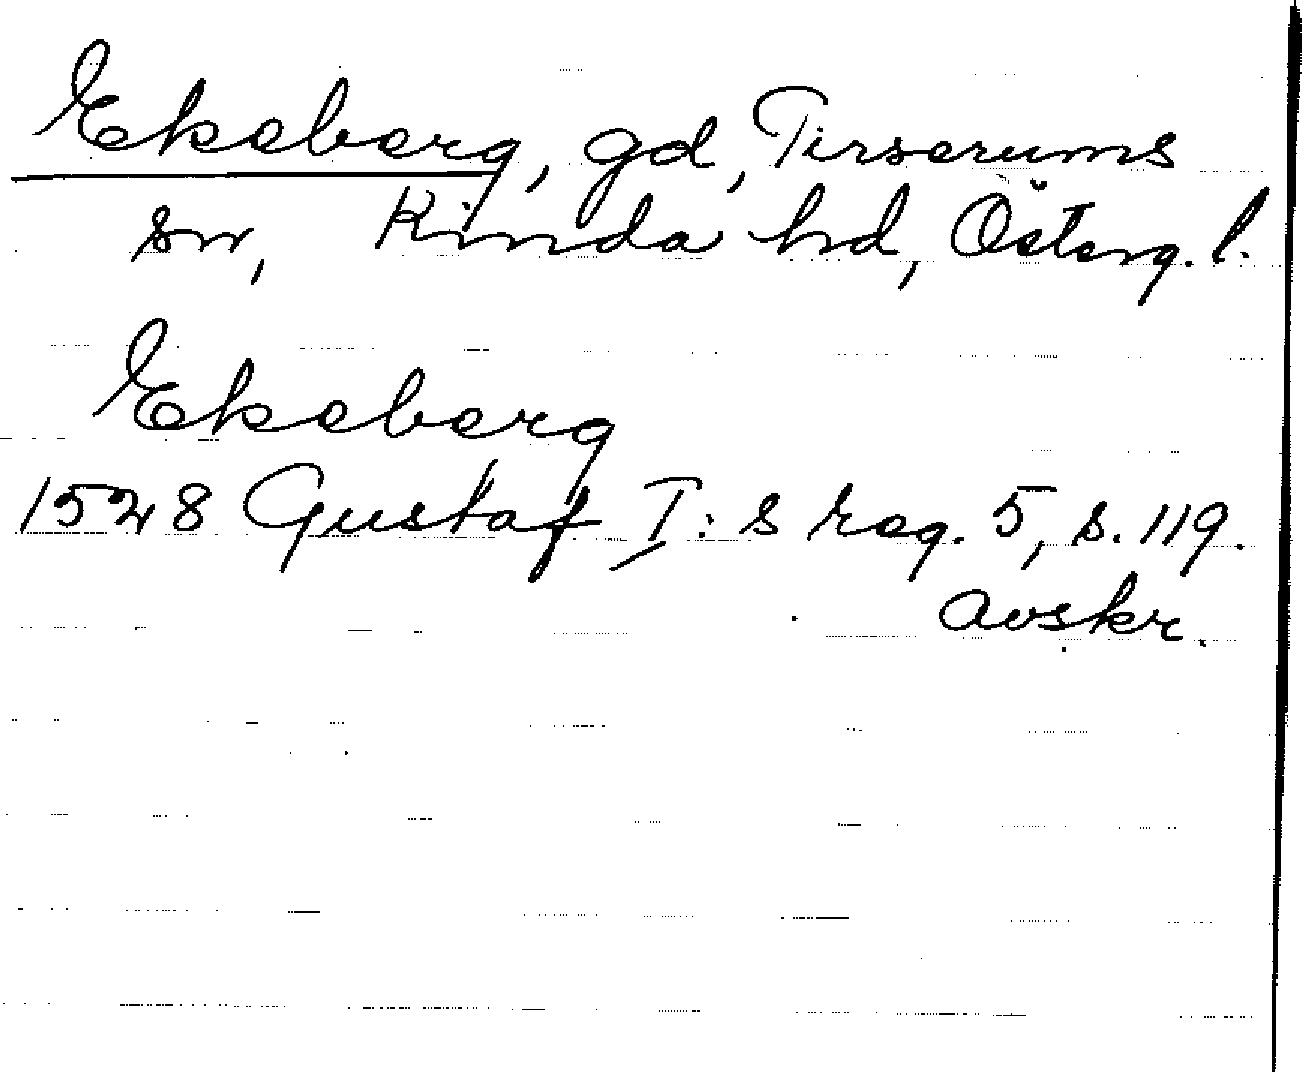 Ekeberg, gd, Tirserums
sn, Kinda hd, Österg. l.
Ekeberg
1528 Gustaf I: s reg. 5, s. 119.
avskr.